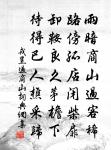 雨暗商山過客稀
路傍孤店閉柴扉
卸鞍良久茅簷下
待得巴人樵采歸
戎昱過商山詞典網書